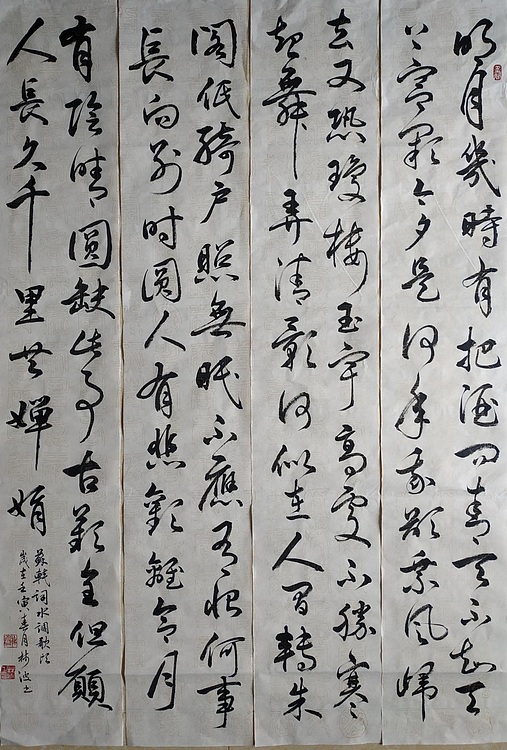 明月幾時有把酒问青天不知天
上宫闕今夕是何年我欲乘风歸
去又恐瓊樓玉宇高处不勝寒
起舞弄清影何似在人间轉朱
阁低綺户照無眠不應有恨何事
長向别时圓人有悲歡離合月
有陰晴圓缺此事古難全但願
人長久千里共嬋娟
蘇軾词水调歌頭
歲在壬寅春月林